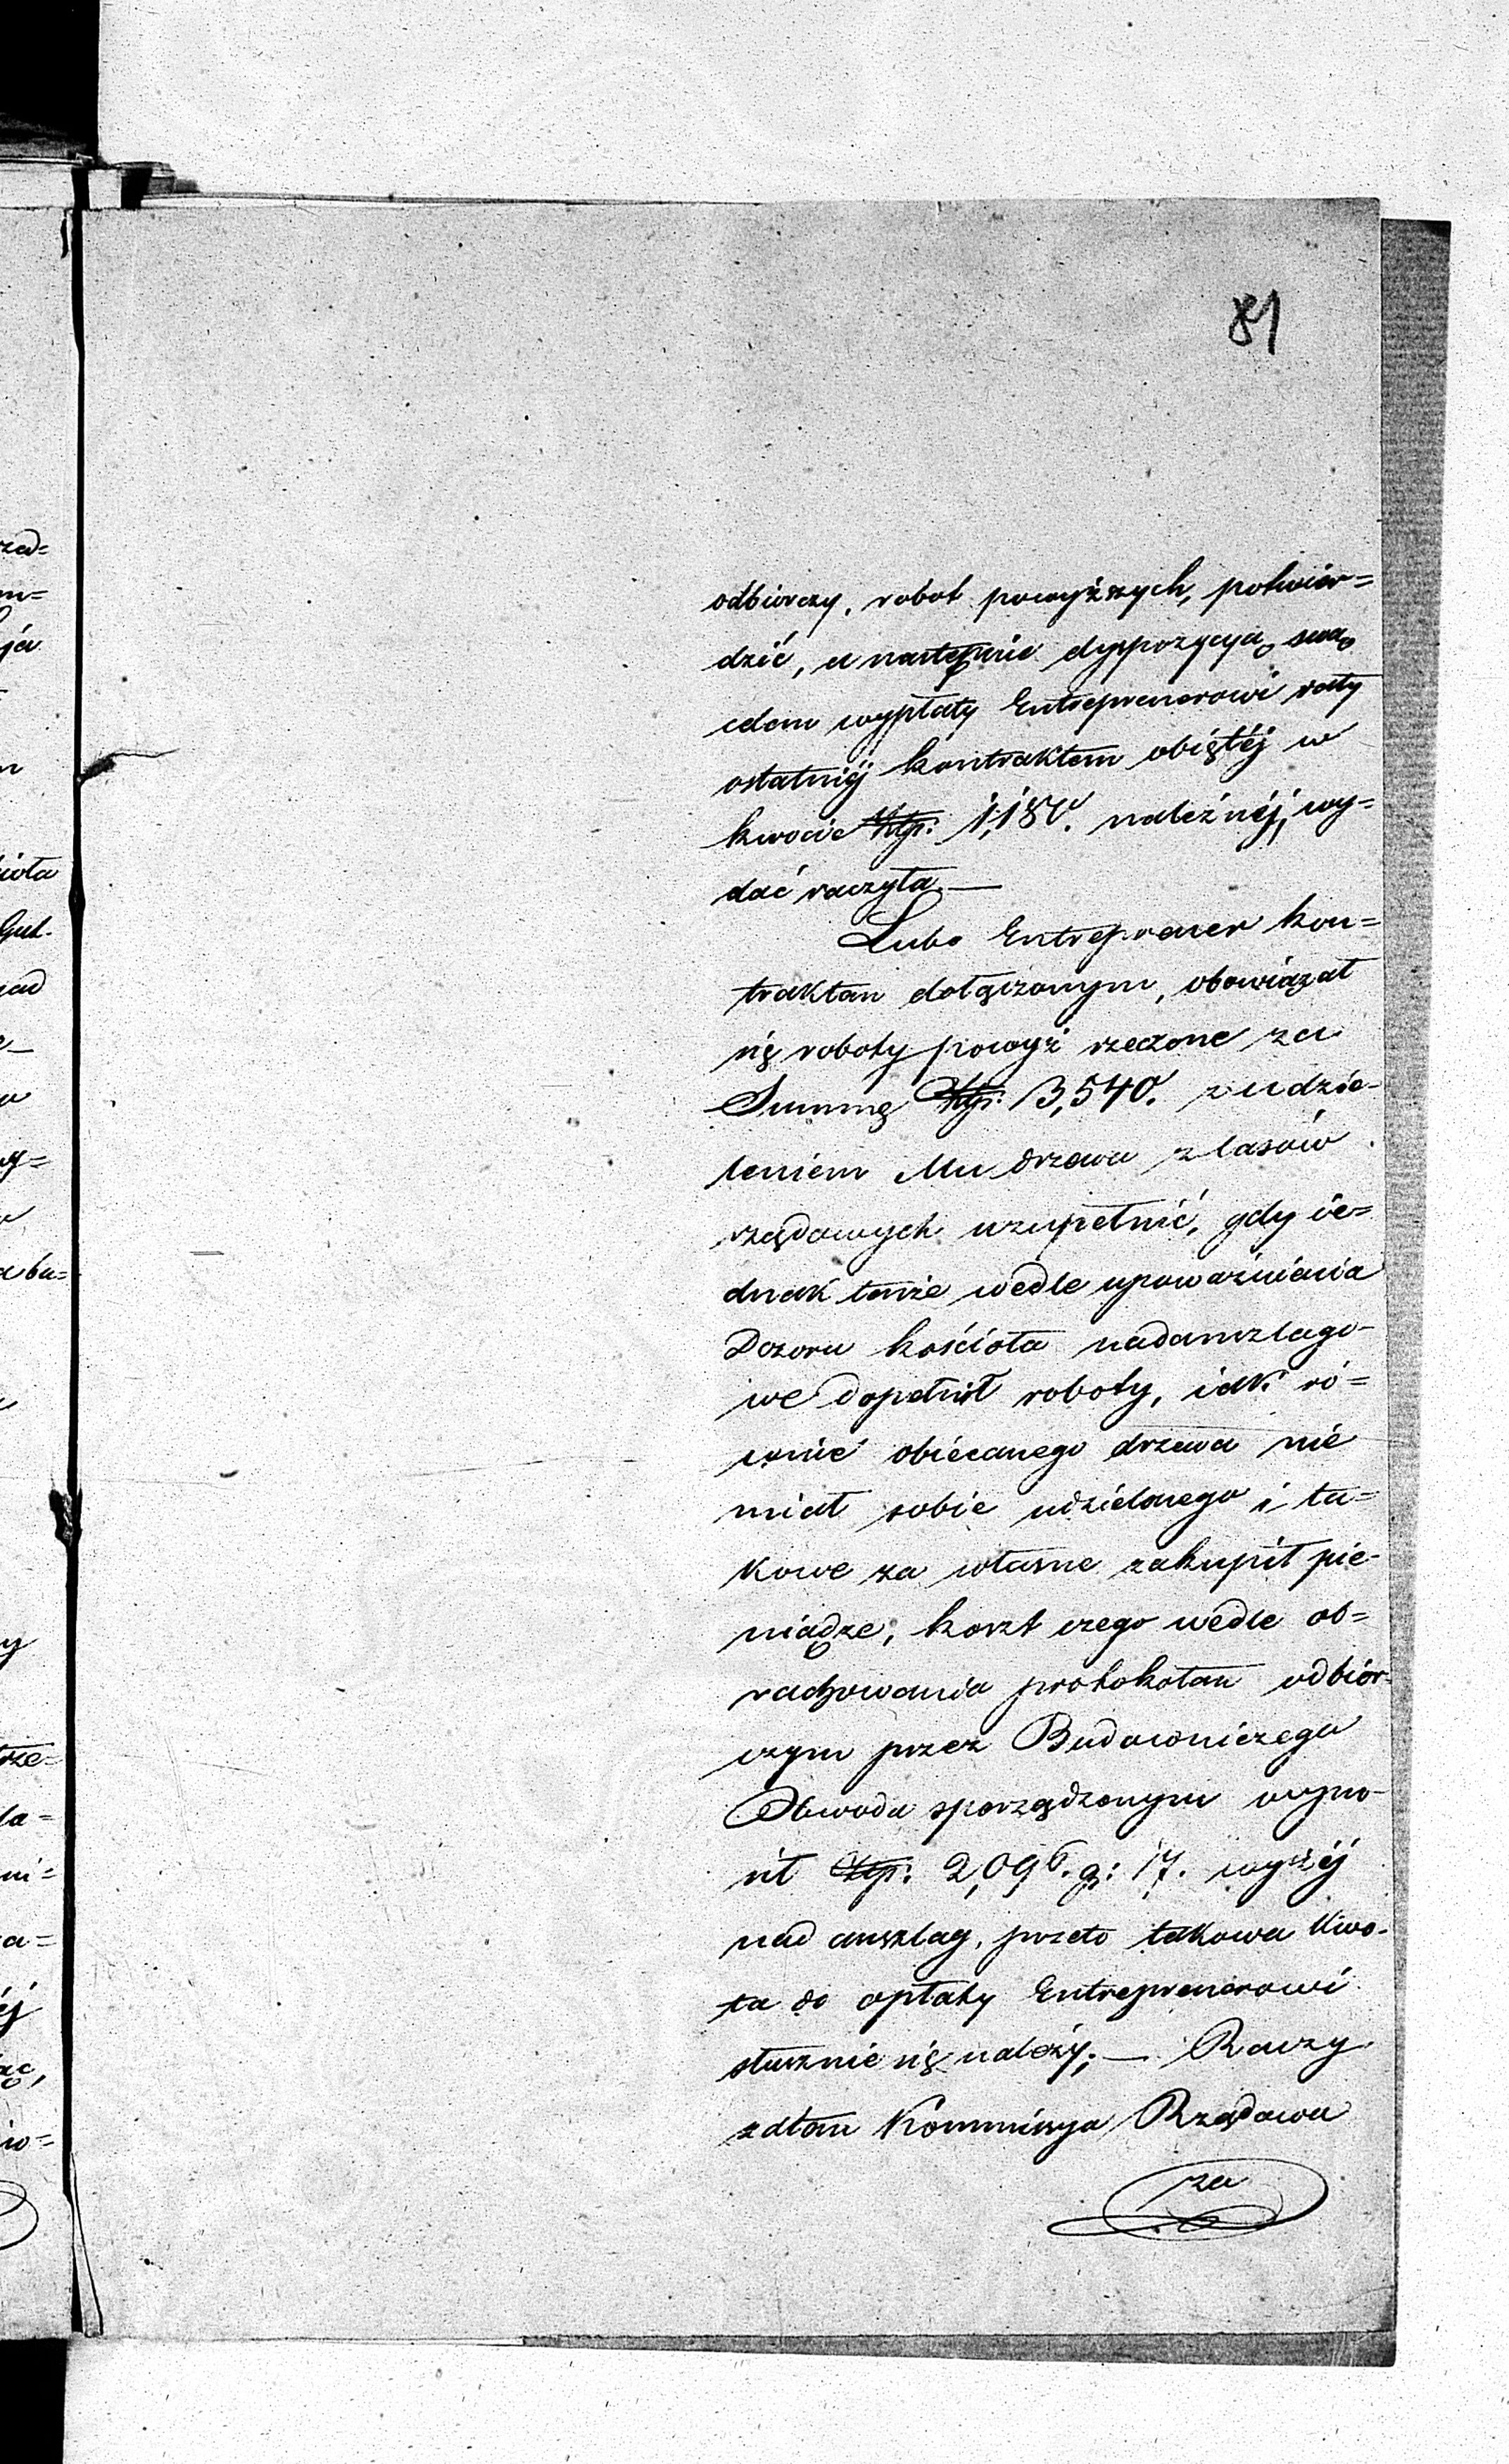 81
odbiorczy, robot powyższych, potwier=
dzić, a następnie dyspozycyą swą
celem wypłaty Entreprenerowi raty
ostatniéj kontraktem obiętéj w
kwocie Złp: 1,180. należnéj, wy=
dać raczyła.—
Lubo Entreprener kon=
traktem dołączonym, obowiązał
się roboty powyż rzeczone za
Summę Złp: 3,540. z udzie-
leniem Mu drzewa z lasów
rządowych uzupełnić, gdy ie=
dnak tenże wedle upoważnienia
Dozoru kościoła nadanszlago-
we dopełnił roboty, iak ró=
wnie obiecanego drzewa nie
miał sobie udzielonego i ta=
kowe za własne zakupił pie-
niądze, koszt czego wedle ob=
rachowania protokołem odbiór-
czym przez Budowniczego
Obwodu sporządzonym wyno-
sił Złp: 2,096. g: 17. wyżéj
nad anszlag, przeto takowa kwo-
ta do opłaty Entreprenerowi
słusznie się należy;— Raczy
zatem Kommissya Rządowa
za